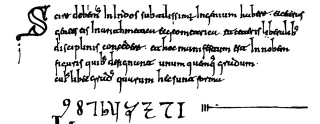 Scire debem' In Indos subtilissimum Ingenium habere et ceteras
gentes eis In arithmetica et geometrica et ceteris liberalib'
disciplinis concedere et hoc manifestum est In nobem
figuris quib' designant unum quemq' gradum
cuius libet gradus quarum hec sunt forma
9 8 7 6 5 4 3 2 1